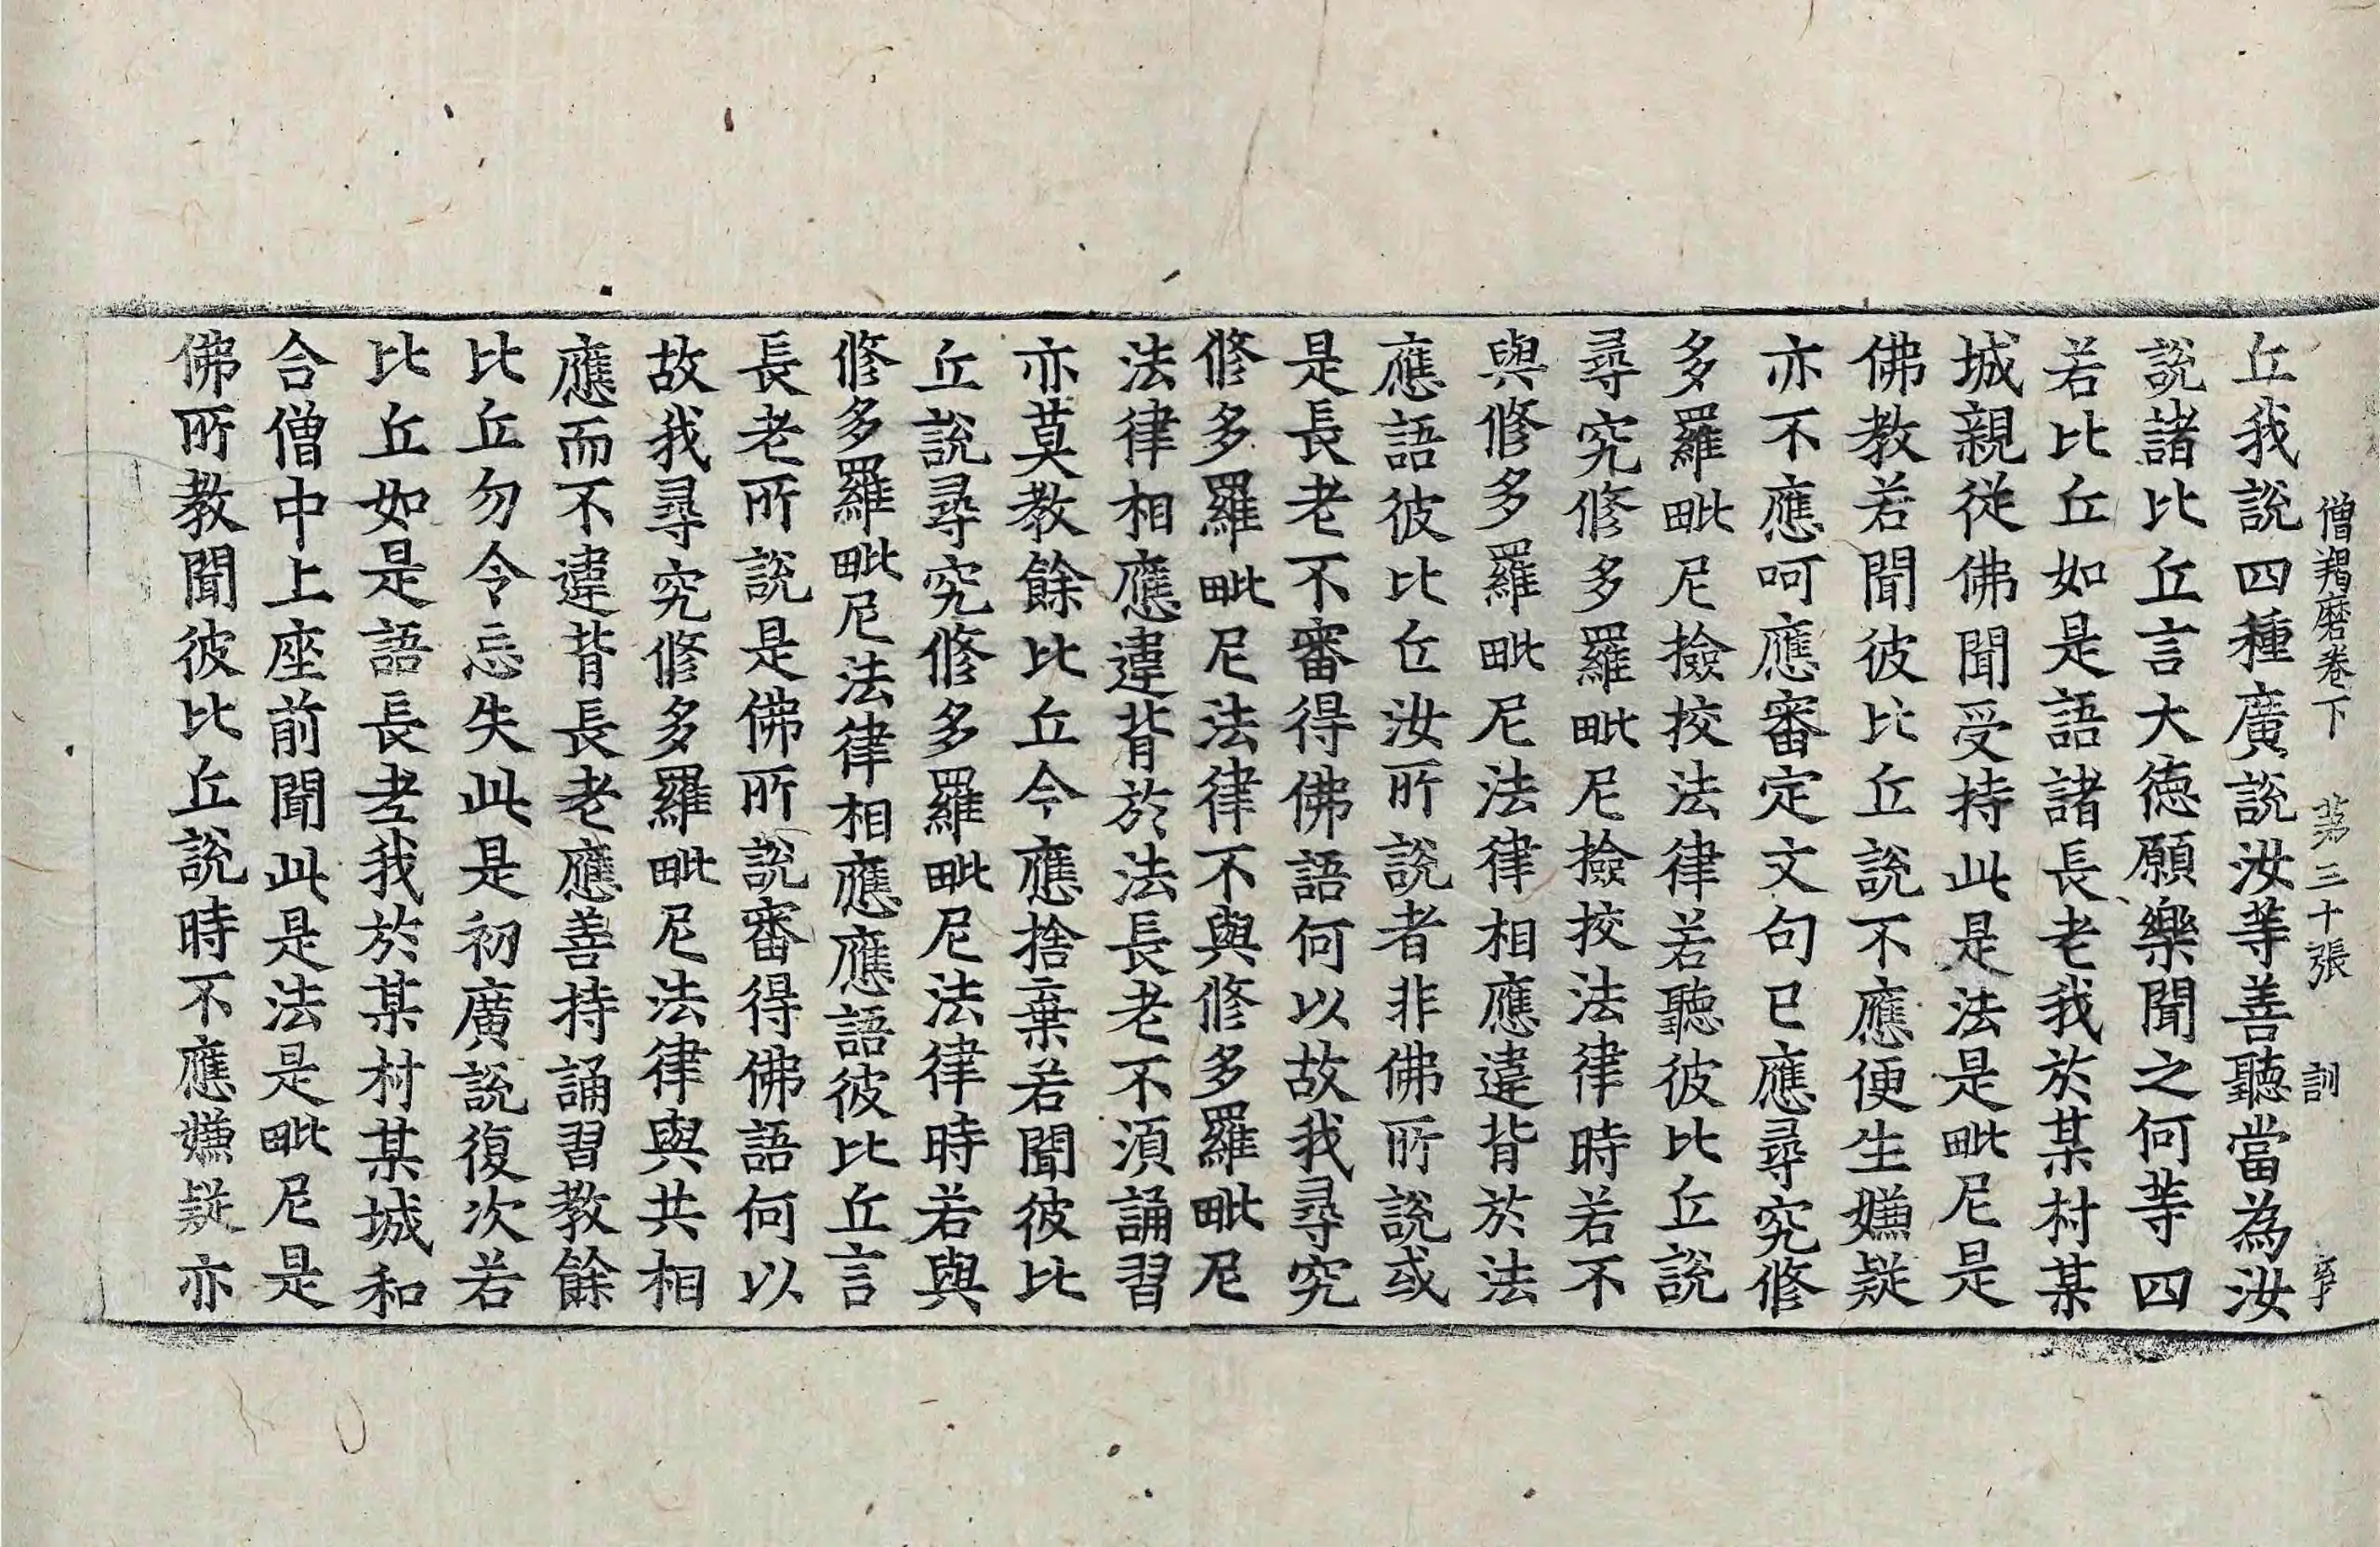 僧羯磨卷下 苐三十張 訓
丘我說四種廣說汝等善聽當為汝
說諸比丘言大德願樂聞之何等四
若比丘如是語諸長老我於某村某
城親從佛聞受持此是法是毗尼是
佛教若聞彼比丘說不應便生嫌疑
亦不應呵應審定文句已應尋究修
多羅毗尼撿挍法律若聽彼比丘說
尋究修多羅毗尼撿挍法律時若不
與修多羅毗尼法律相應違背於法
應語彼比丘汝所說者非佛所說或
是長老不審得佛語何以故我尋究
修多羅毗尼法律不與修多羅毗尼
法律相應違背於法長老不湏誦習
亦莫教餘比丘今應捨棄若聞彼比
丘說尋究修多羅毗尼法律時若與
修多羅毗尼法律相應應語彼比丘言
長老所說是佛所說審得佛語何以
故我尋究修多羅毗尼法律與共相
應而不違背長老應善持誦習教餘
比丘勿令忘失此是初廣說復次若
比丘如是語長老我於某村某城和
合僧中上座前聞此是法是毗尼是
佛所教聞彼比丘說時不應嫌疑亦